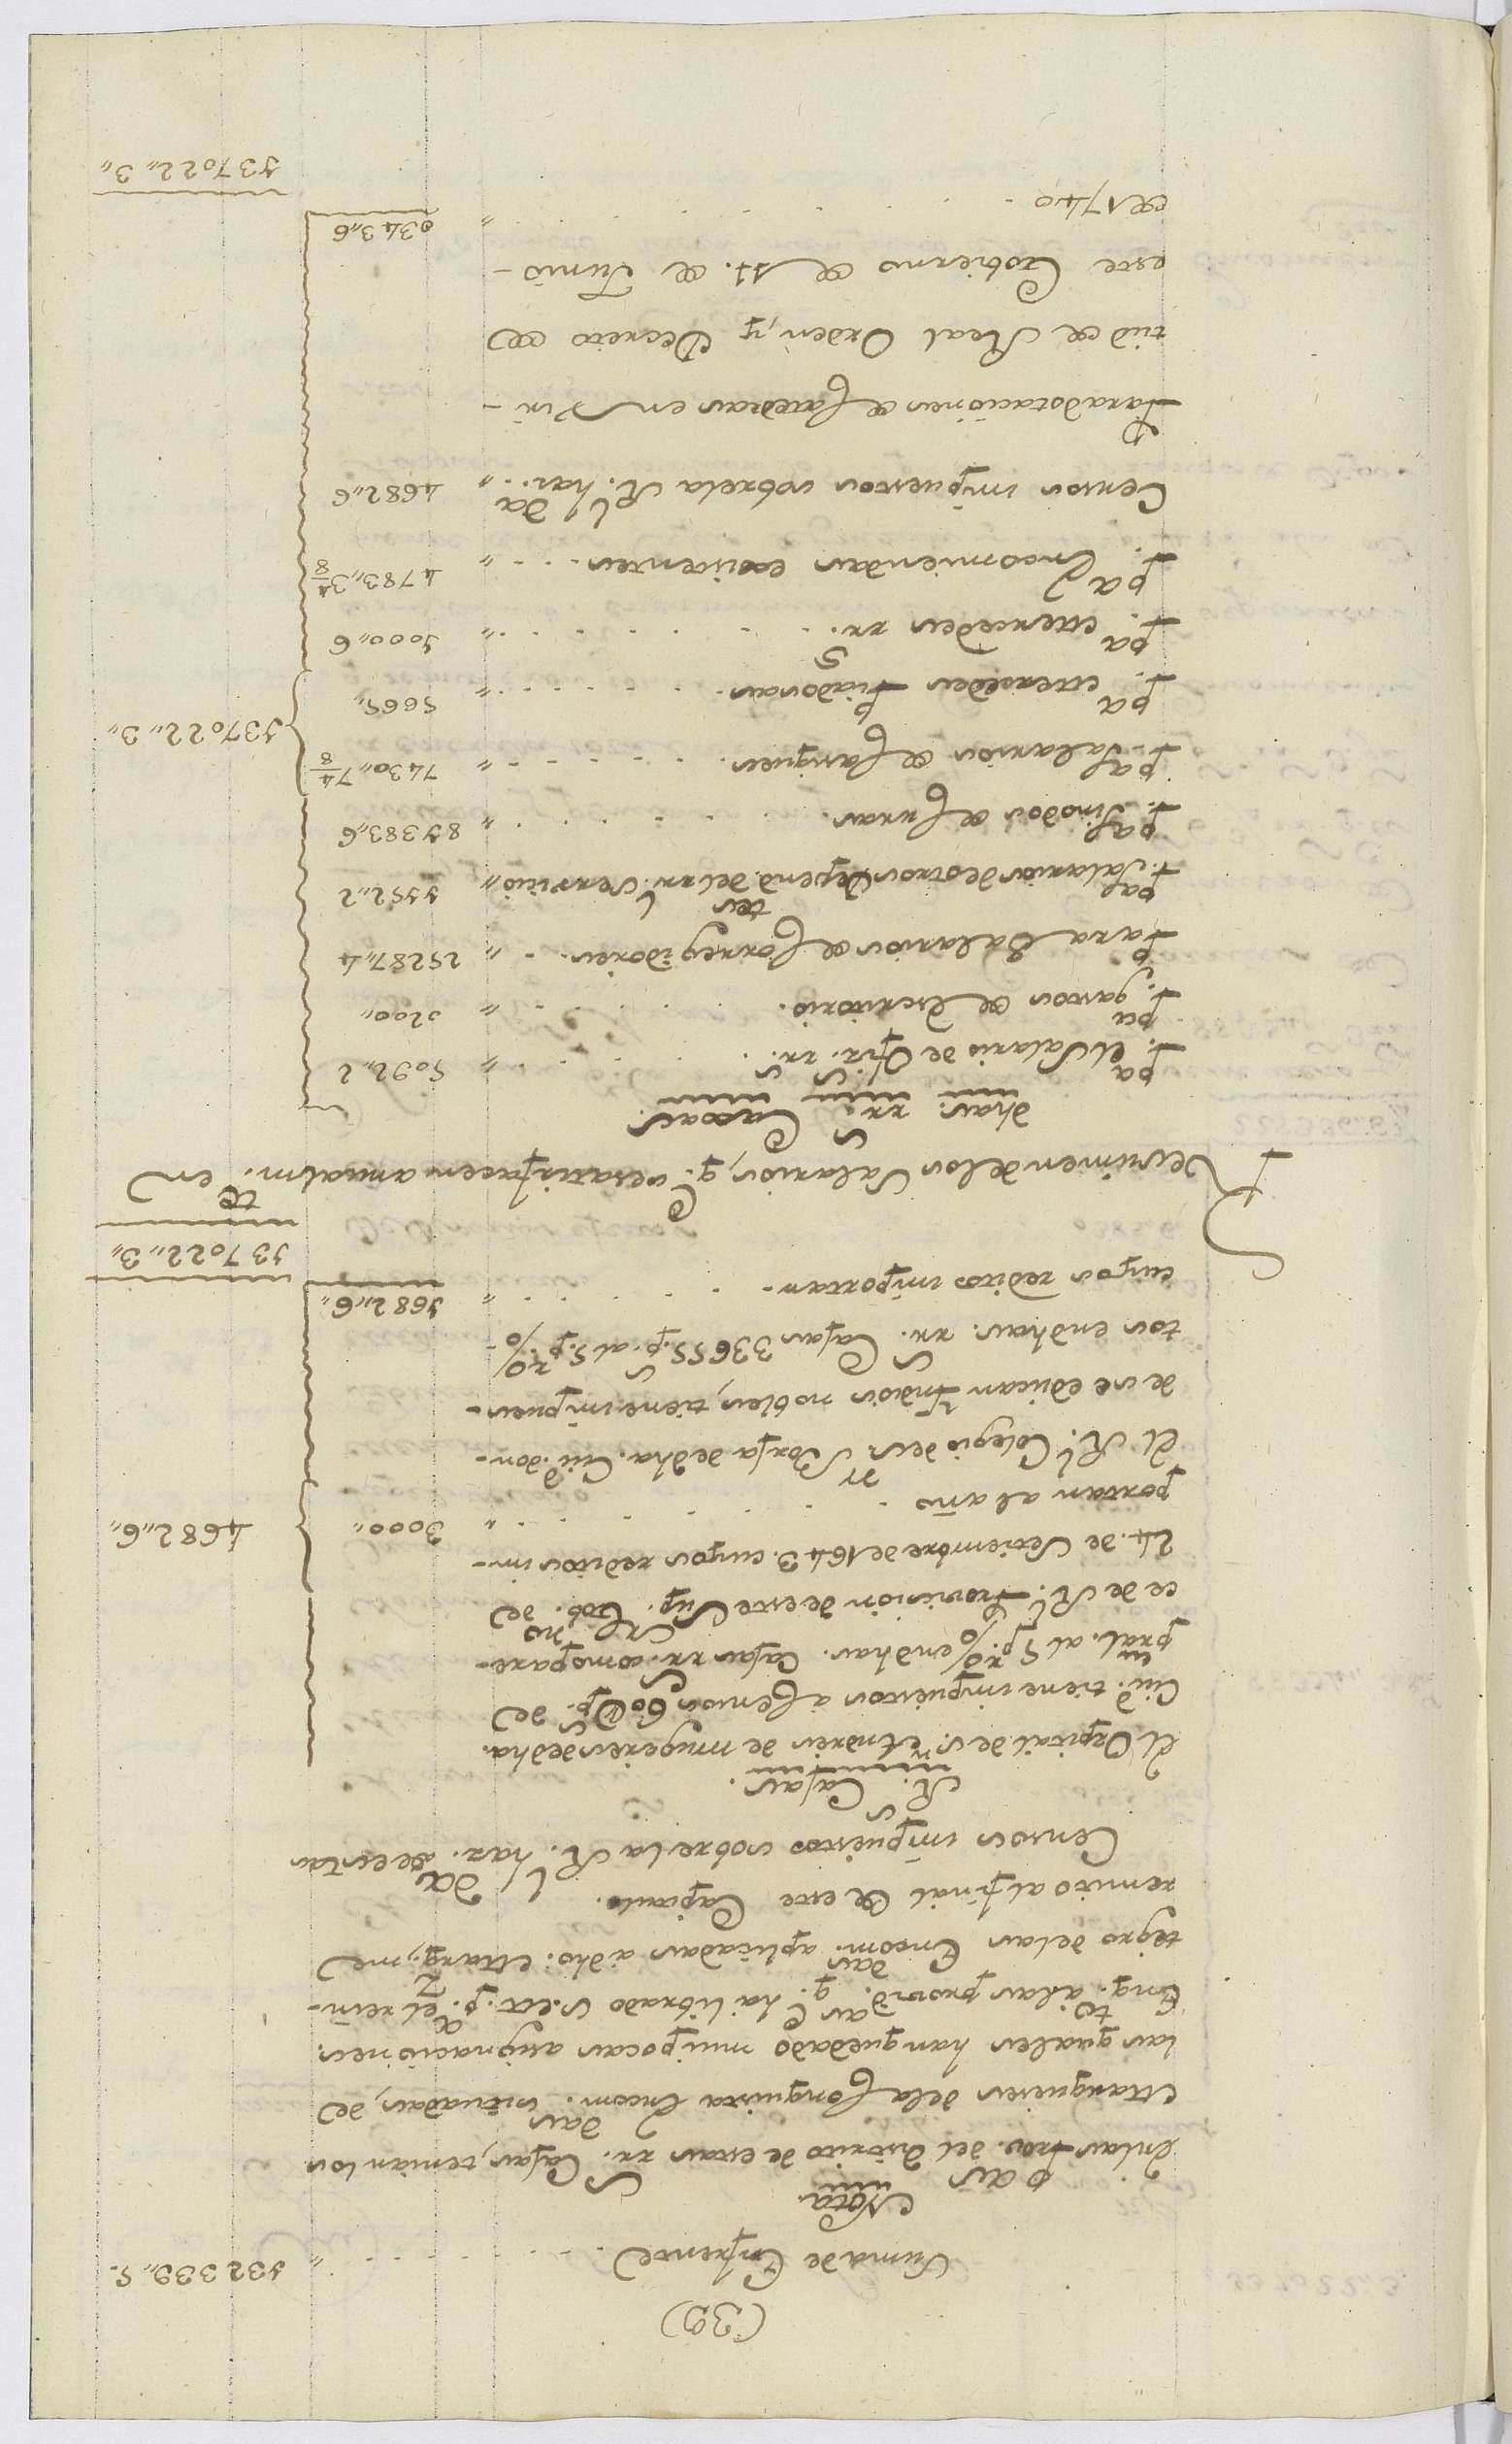 (39)
Suma de Enfrente . . . . . . " 132339,,5.
Nota.
En las Prov.as del distrito de estas rr.s Cajas, tenian los
Marqueses dela Conquista Encom.das situadas, de
las quales han quedado mui pocas asignaciones.
En q.to a las provid.as q.e ha librado S.M. p.a el rein-
tegro delas Encom.das aplicadas a dho. Marq.z, me
remito al final de este Capitulo.
Censos impuestos sobre la R.l haz.da de estas
R.s Cajas.
El Ospital de S.n Andres de mugeres de dha.
Ciu.d tiene impuestos á Censos 60 @ p.s de
pral. al 5 p.r % en dhas. Cajas rr.s como pare-
ce de R.l Provision de este Sup.r Gob.no de
24. de Setiembre de 1643. cuyos reditos im-
portan al año . . . . . . " 3000,, 4682,,6,,
El R.l Colegio de S.n Borja de dha. Ciu.d don-
de se educan Yndios nobles, tiene impues-
tos en dhas. rr.s Cajas 33655 p.s al 5. p.r %
cuyos reditos importan . . . . " 1682,,6,,
137022,,3,,
Resumen delos Salarios, q.e se satisfacen anualm.te en
dhas. rr.s Caxas.
P.a el Salario de Ofiz.s rr.s . . . . " 5092,,2
P.a gastos de Escritorio. . . . . " 0200,,
Para Salarios de Corregidores. . . " 25287,,4
P.a Salarios de otros depend.tes del rr.l Servicio " 1152,,2
P.a Sinodos de Curas. . . . . . " 81383,,6
P.a Salarios de Caciques. . . . . . " 7430,,7 4/8
P.a Mersedes Piadosas. . . . . . " 5665,, 137022,,3,,
P.a Mersedes rr.s . . . . . " 1000,,6
P.a Encomiendas existentes. . . . " 4783,,3 4/8
Censos impuestos sobre la R.l haz.da " 4682,,6
Para dotaciones de Catedras en Vir-
tud de Real Orden, y Decreto de
este Gobierno de 11. de Junio
de 1740 . . . . . . . " 0343,,6
137022,,3,,